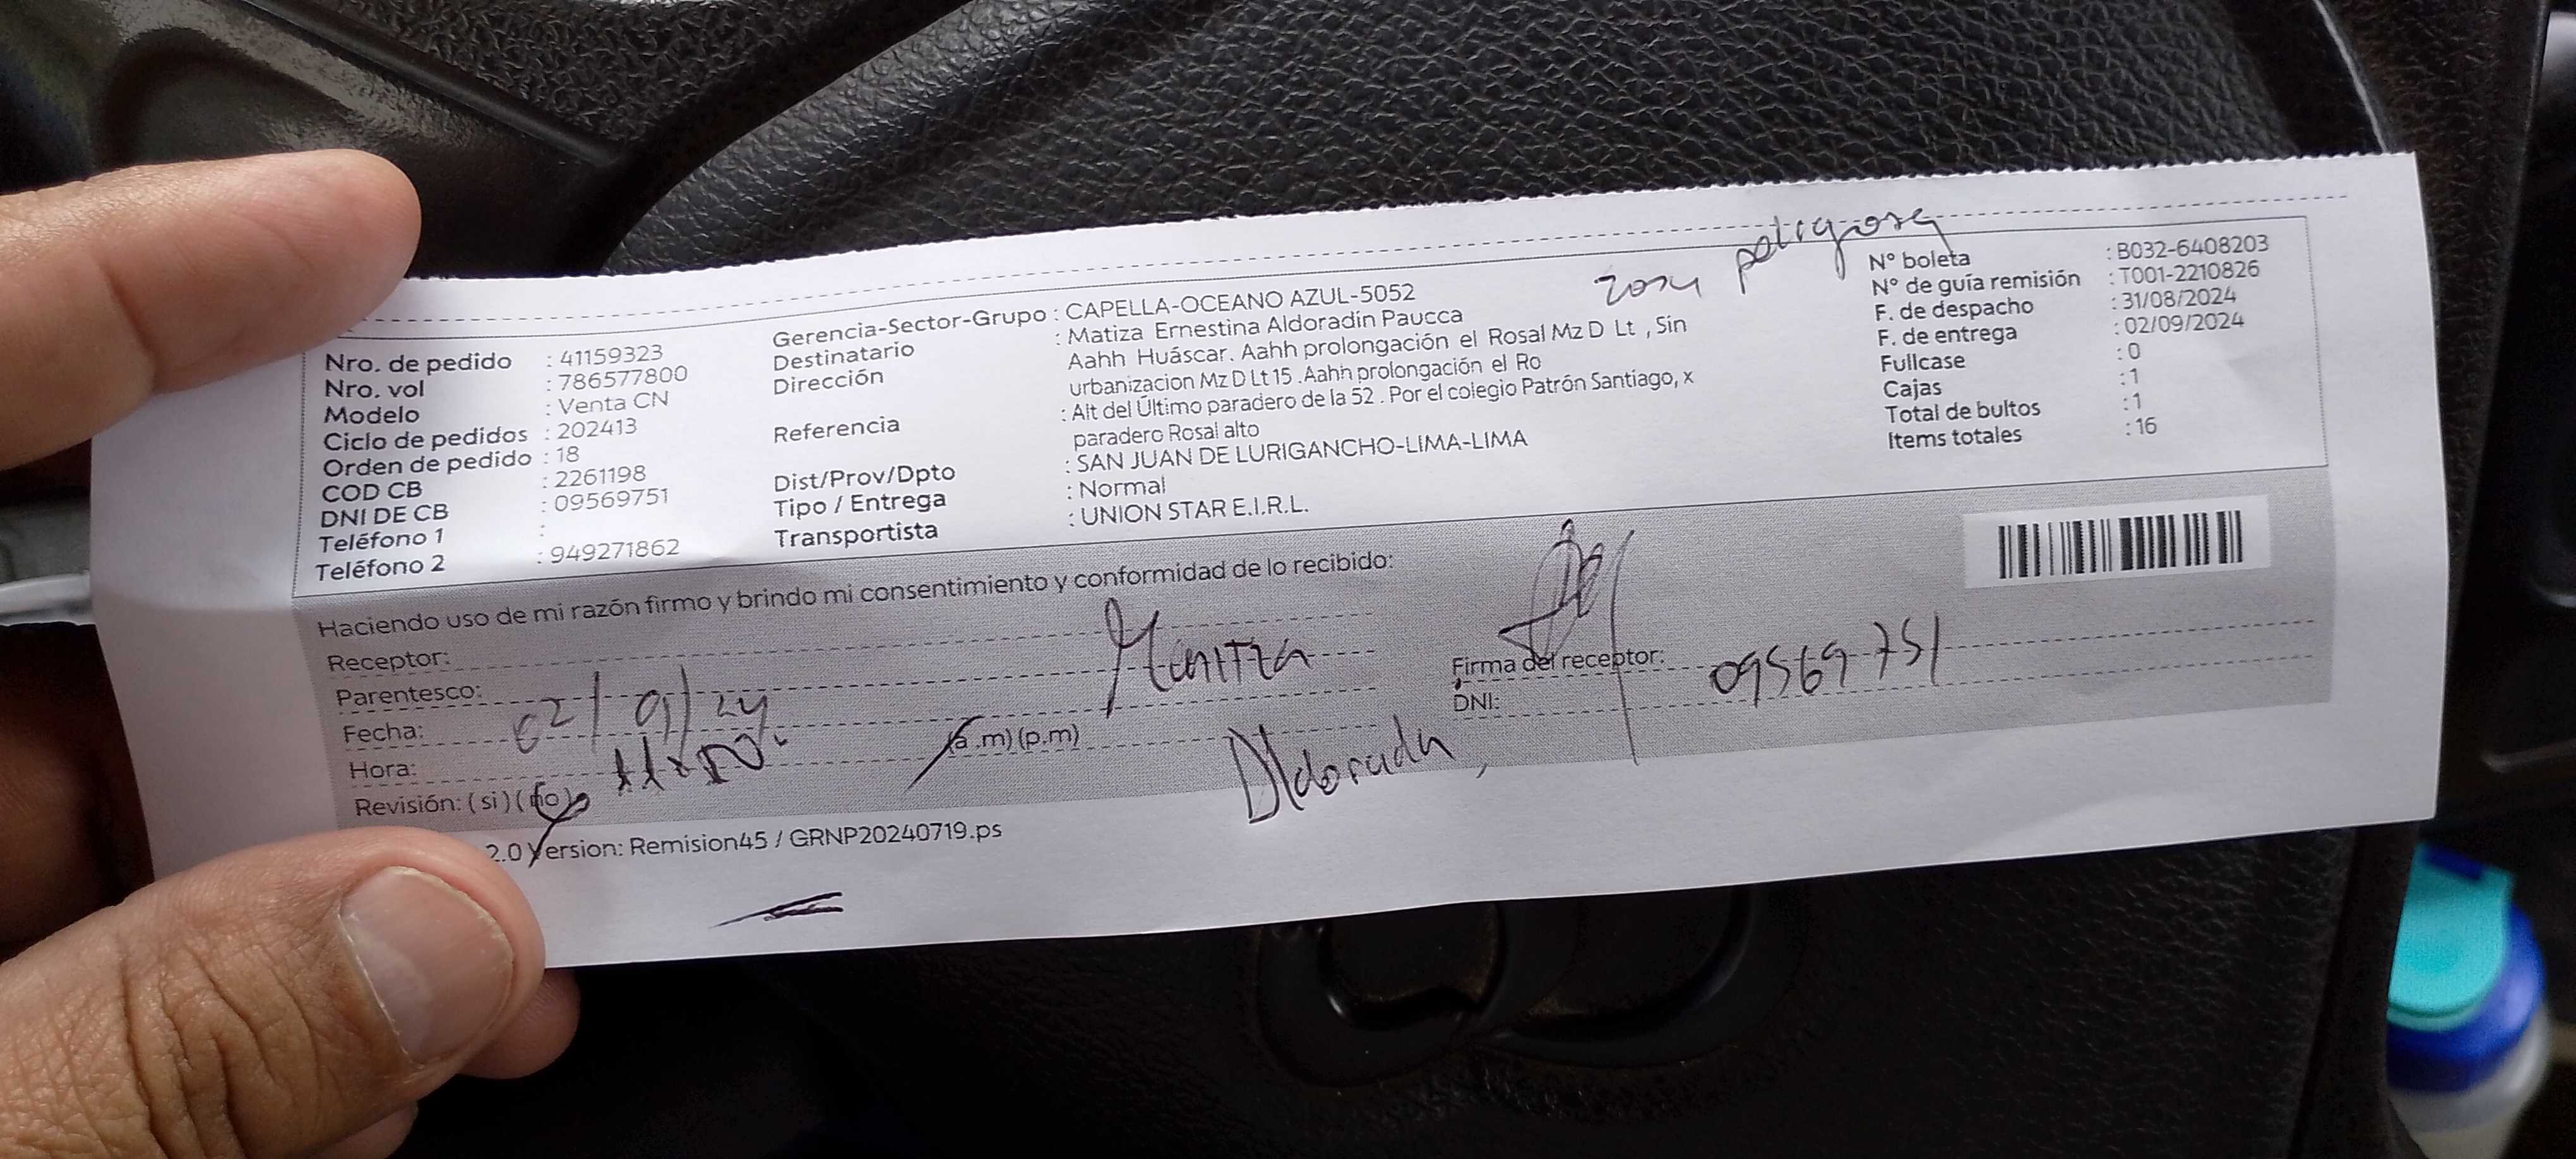 zona peligrosa
Nro. de pedido : 41159323
Nro. vol : 786577800
Modelo : Venta CN
Ciclo de pedidos : 202413
Orden de pedido : 18
COD CB : 2261198
DNI DE CB : 09569751
Teléfono 1 :
Teléfono 2 : 949271862
Gerencia-Sector-Grupo : CAPELLA-OCEANO AZUL-5052
Destinatario : Matiza Ernestina Aldoradin Paucca
Dirección Aahh Huáscar. Aahh prolongación el Rosal Mz D Lt , Sin
urbanizacion Mz D Lt 15 .Aahh prolongación el Ro
Referencia : Alt del Último paradero de la 52 . Por el colegio Patrón Santiago, x
paradero Rosal alto
Dist/Prov/Dpto : SAN JUAN DE LURIGANCHO-LIMA-LIMA
Tipo / Entrega : Normal
Transportista : UNION STAR E.I.R.L.
N° boleta : B032-6408203
N° de guía remisión : T001-2210826
F. de despacho : 31/08/2024
F. de entrega : 02/09/2024
Fullcase : 0
Cajas : 1
Total de bultos : 1
Items totales : 16
Haciendo uso de mi razón firmo y brindo mi consentimiento y conformidad de lo recibido:
Receptor:
Parentesco:
Fecha: 02/09/24
Hora: 11:50 (a .m) (p.m)
Revisión: (si) (no)
Firma del receptor:
DNI: 09569751
2.0 Version: Remision45 / GRNP20240719.ps